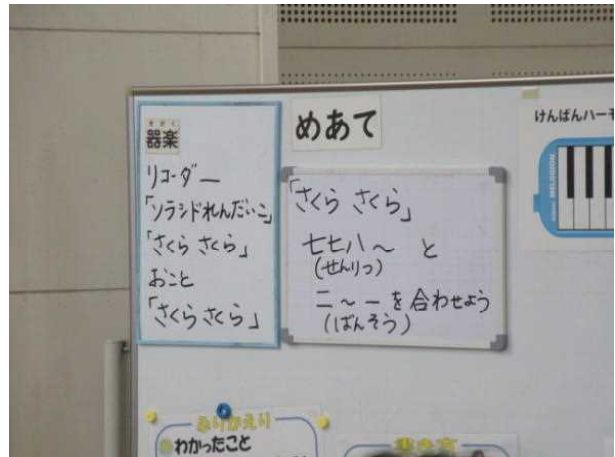 きがく
器楽
リコーダー
「ソラシドれんだいこ」
「さくら さくら」
おこと
「さくらさくら」
めあて
「さくら さくら」
七七八〜 と
(せんりつ)
二〜一を合わせよう
(ばんそう)
けんばんハーモ
ふりかえり
わかったこと
書き方